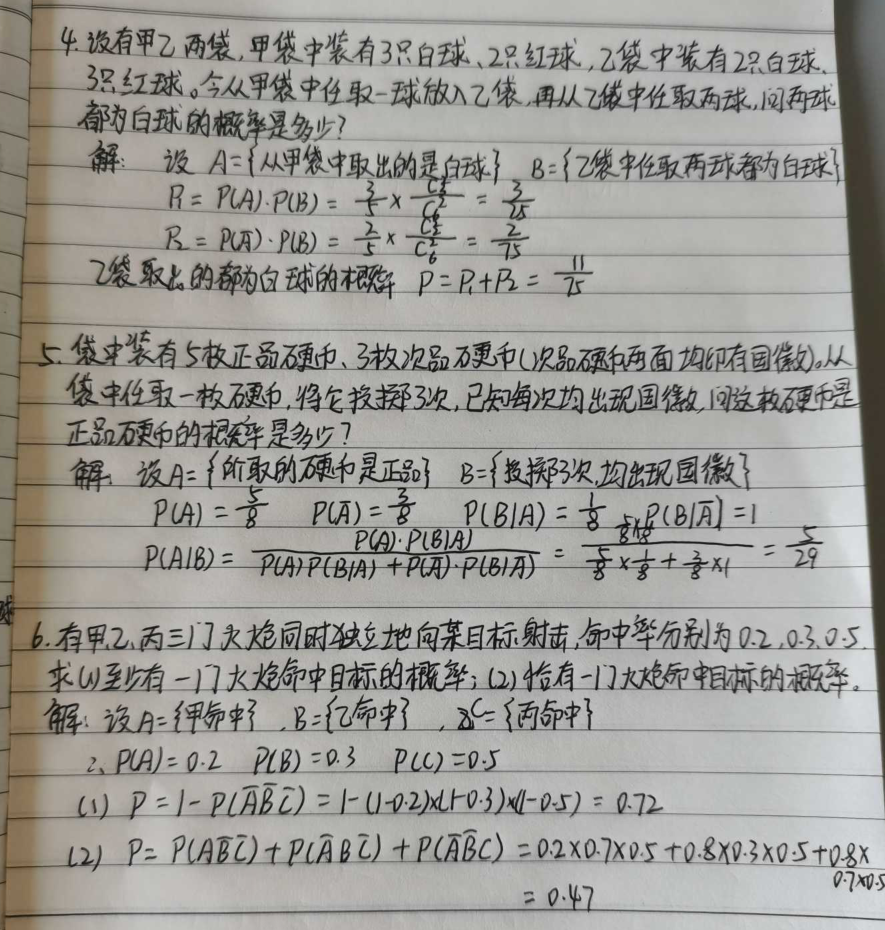 4. 设有甲乙两袋,甲袋中装有3只白球、2只红球,乙袋中装有2只白球、
3只红球。今从甲袋中任取一球放入乙袋,再从乙袋中任取两球,问两球
都为白球的概率是多少?
解: 设 A={从甲袋中取出的是白球} B={乙袋中任取两球都为白球}
P₁ = P(A)·P(B) = 3/5 × C₃²/C₆² = 3/25
P₂ = P(Ā)·P(B) = 2/5 × C₂²/C₆² = 2/75
乙袋取出的都为白球的概率 P = P₁+P₂ = 11/75
5. 袋中装有5枚正品硬币、3枚次品硬币(次品硬币两面均印有国徽)。从
袋中任取一枚硬币,将它投掷3次,已知每次均出现国徽,问这枚硬币是
正品硬币的概率是多少?
解: 设A={所取的硬币是正品} B={投掷3次,均出现国徽}
P(A) = 5/8 P(Ā) = 3/8 P(B|A) = 1/8 P(B|Ā) = 1
P(A|B) = P(A)·P(B|A)/P(A)P(B|A)+P(Ā)·P(B|Ā) = 5/8×1/8/5/8×1/8+3/8×1 = 5/29
6. 有甲、乙、丙三门火炮同时独立地向某目标射击,命中率分别为0.2、0.3、0.5,
求(1)至少有一门火炮命中目标的概率;(2)恰有一门火炮命中目标的概率。
解: 设A={甲命中}, B={乙命中}, C={丙命中}
P(A)=0.2 P(B)=0.3 P(C)=0.5
(1) P = 1-P(ĀB̄C̄) = 1-(1-0.2)×(1-0.3)×(1-0.5) = 0.72
(2) P = P(AB̄C̄)+P(ĀBC̄)+P(ĀB̄C) = 0.2×0.7×0.5+0.8×0.3×0.5+0.8×
0.7×0.5
= 0.47